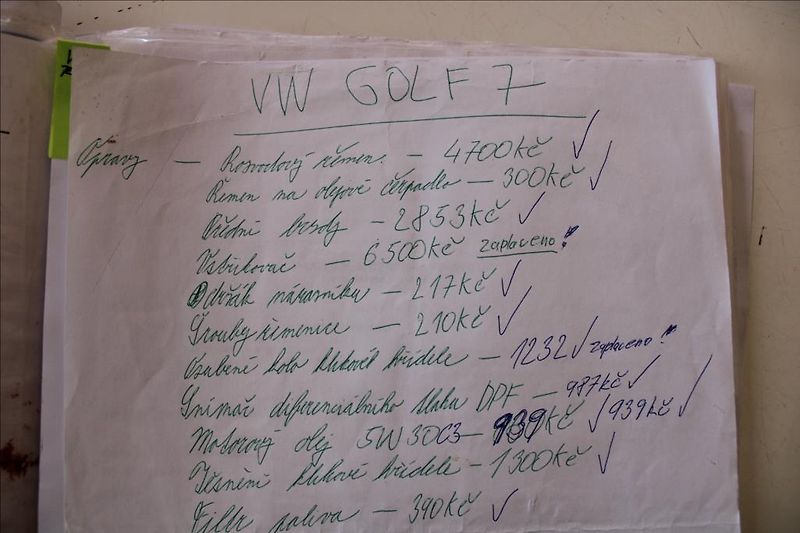 VW GOLF 7
Opravy — Rozvodový řemen. — 4700kč ✓
Řemen na olejové čerpadlo — 300kč ✓
Přední brzdy — 2853kč ✓
Vstřikovač — 6500kč zaplaceno!!
Držák nárazníku — 217kč ✓
Šrouby řemenice — 210kč ✓
Ozubené kolo klikové hřídele — 1232 ✓ zaplaceno!!
Snímač diferenciálního tlaku DPF — 987kč ✓
Motorový olej 5W30C3 — 939kč ✓ 939kč ✓
Těsnění klikové hřídele — 1300kč ✓
Filtr paliva — 390kč ✓